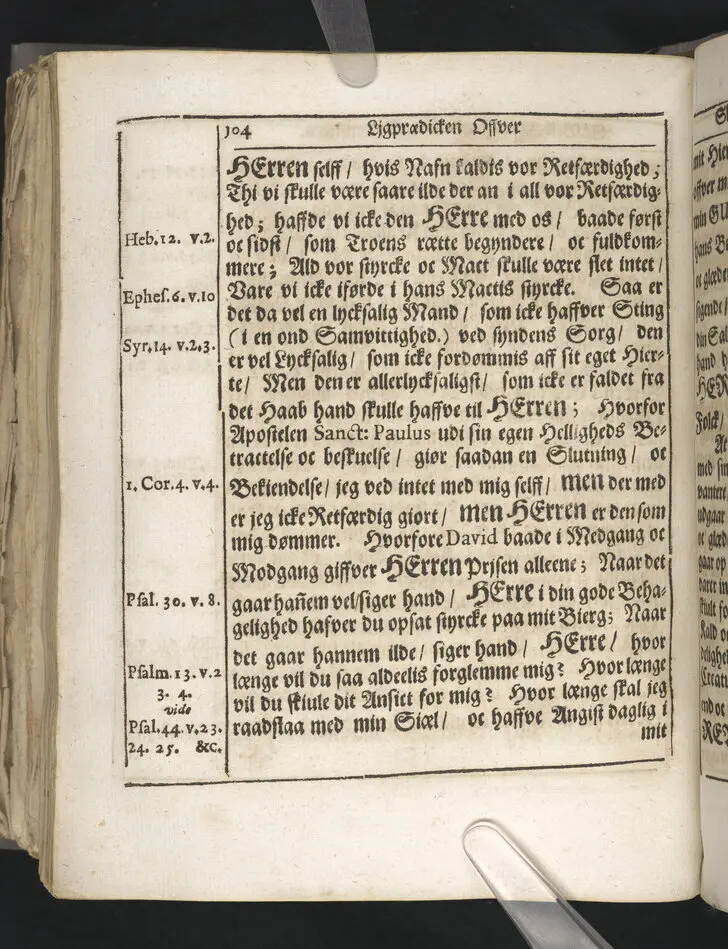 104
Ligprædicken Offver
HErren selff / hvis Nafn kaldis vor Retfærdighed ;
Thi vi skulle være saare ilde der an i all vor Retfærdig-
hed ; haffde vi icke den HErre med os / baade først
Heb. 12. v. 2.
oc sidst / som Troens rætte begyndere / oc fuldkom-
mere ; Ald vor styrcke oc Mact skulle være slet intet /
Ephes. 6. v. 10
Vare vi icke iførde i hans Mactis styrcke. Saa er
det da vel en lycksalig Mand / som icke haffver Sting
( i en ond Samvittighed. ) ved syndens Sorg / den
Syr. 14. v. 2. 3.
er vel Lycksalig / som icke fordømmis aff sit eget Hier-
te / Men den er allerlycksaligst / som icke er faldet fra
det Haab hand skulle haffve til HErren ; Hvorfor
Apostelen Sanct: Paulus udi sin egen Helligheds Be-
tractelse oc beskuelse / giør saadan en Slutning / oc
1. Cor. 4. v. 4.
Bekiendelse / jeg ved intet med mig selff / men der med
er jeg icke Retfærdig giort / men HErren er den som
mig dømmer. Hvorfore David baade i Medgang oc
Modgang giffver HErren Prjsen alleene ; Naar det
Psal. 30. v. 8.
gaar hañem vel / siger hand / HErre i din gode Beha-
gelighed hafver du opsat styrcke paa mit Bierg ; Naar
det gaar hannem ilde / siger hand / HErre / hvor
Psalm. 13. v. 2
længe vil du saa aldeelis forglemme mig ? Hvor længe
3. 4.
vil du skiule dit Ansict for mig ? Hvor længe skal jeg
vide
Psal. 44. v. 23.
raadslaa med min Siæl / oc haffve Angist daglig i
24. 25. &c.
mit